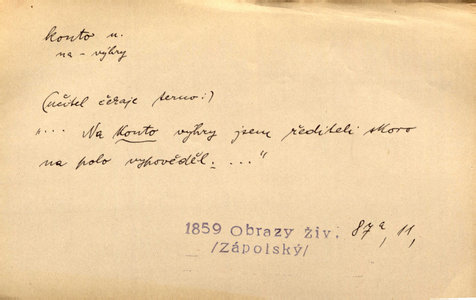 konto n.
na - výhry
(učitel čekaje terno:)
"... Na konto výhry jsem řediteli skoro
na polo vypověděl. ..."
1859 Obrazy živ. 87a, 11,
/Zápolský/